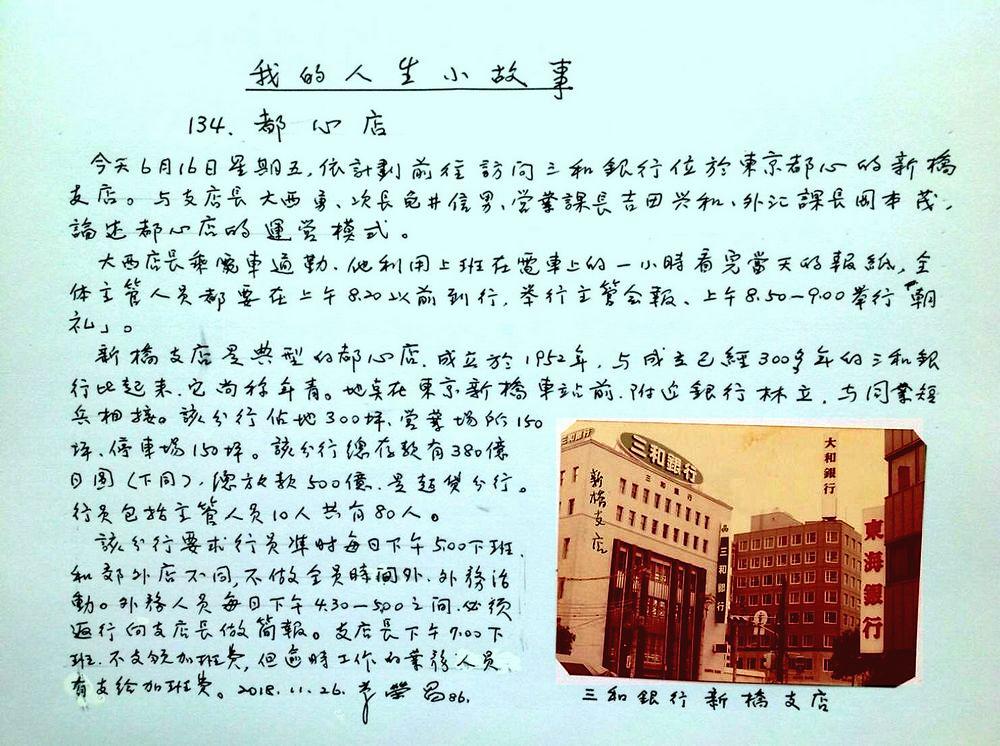 我的人生小故事
134. 都心店
今天6月16日星期五,依計劃前往訪问三和銀行位於東京都心的新橋
支店。与支店長大西勇、次長龟井信男、営業課長吉田兴和、外汇課長岡本茂,
論述都心店的運営模式。
大西店長乘電車通勤、他利用上班在電車上的一小時看完當天的報紙,全
体主管人员都要在上午8.20以前到行,举行主管会報、上午8.50-9.00举行「朝
礼」。
新橋支店是典型的都心店,成立於1952年,与成立已經300多年的三和銀
行比起来,它尚称年青。地点在東京新橋車站前,附近銀行林立,与同業短
兵相接。該分行佔地300坪、営業場所150
坪、停車場150坪。該分行總存款有380億
日圓(下同),總放款500億,是超貸分行。
行员包括主管人员10人共有80人。
該分行要求行员準时每日下午5.00下班,
和郊外店不同,不做全员時间外、外務活
動。外務人员每日下午4.30-5.00之间,必须
返行向支店長做简報。支店長下午7.00下
班,不支领加班费,但逾時工作的業務人员,
有支给加班费。2018.11.26. 李榮昌86.
三和銀行
三和銀行
三和銀行
新橋支店
三和銀行
大和銀行
東海銀行
三和銀行新橋支店